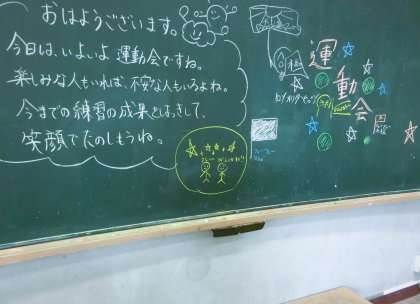 おはようございます。
今日は、いよいよ運動会ですね。
楽しみな人もいれば、不安な人もいるよね。
今までの練習の成果をはっきして、
笑顔でたのしもうね。
運動会